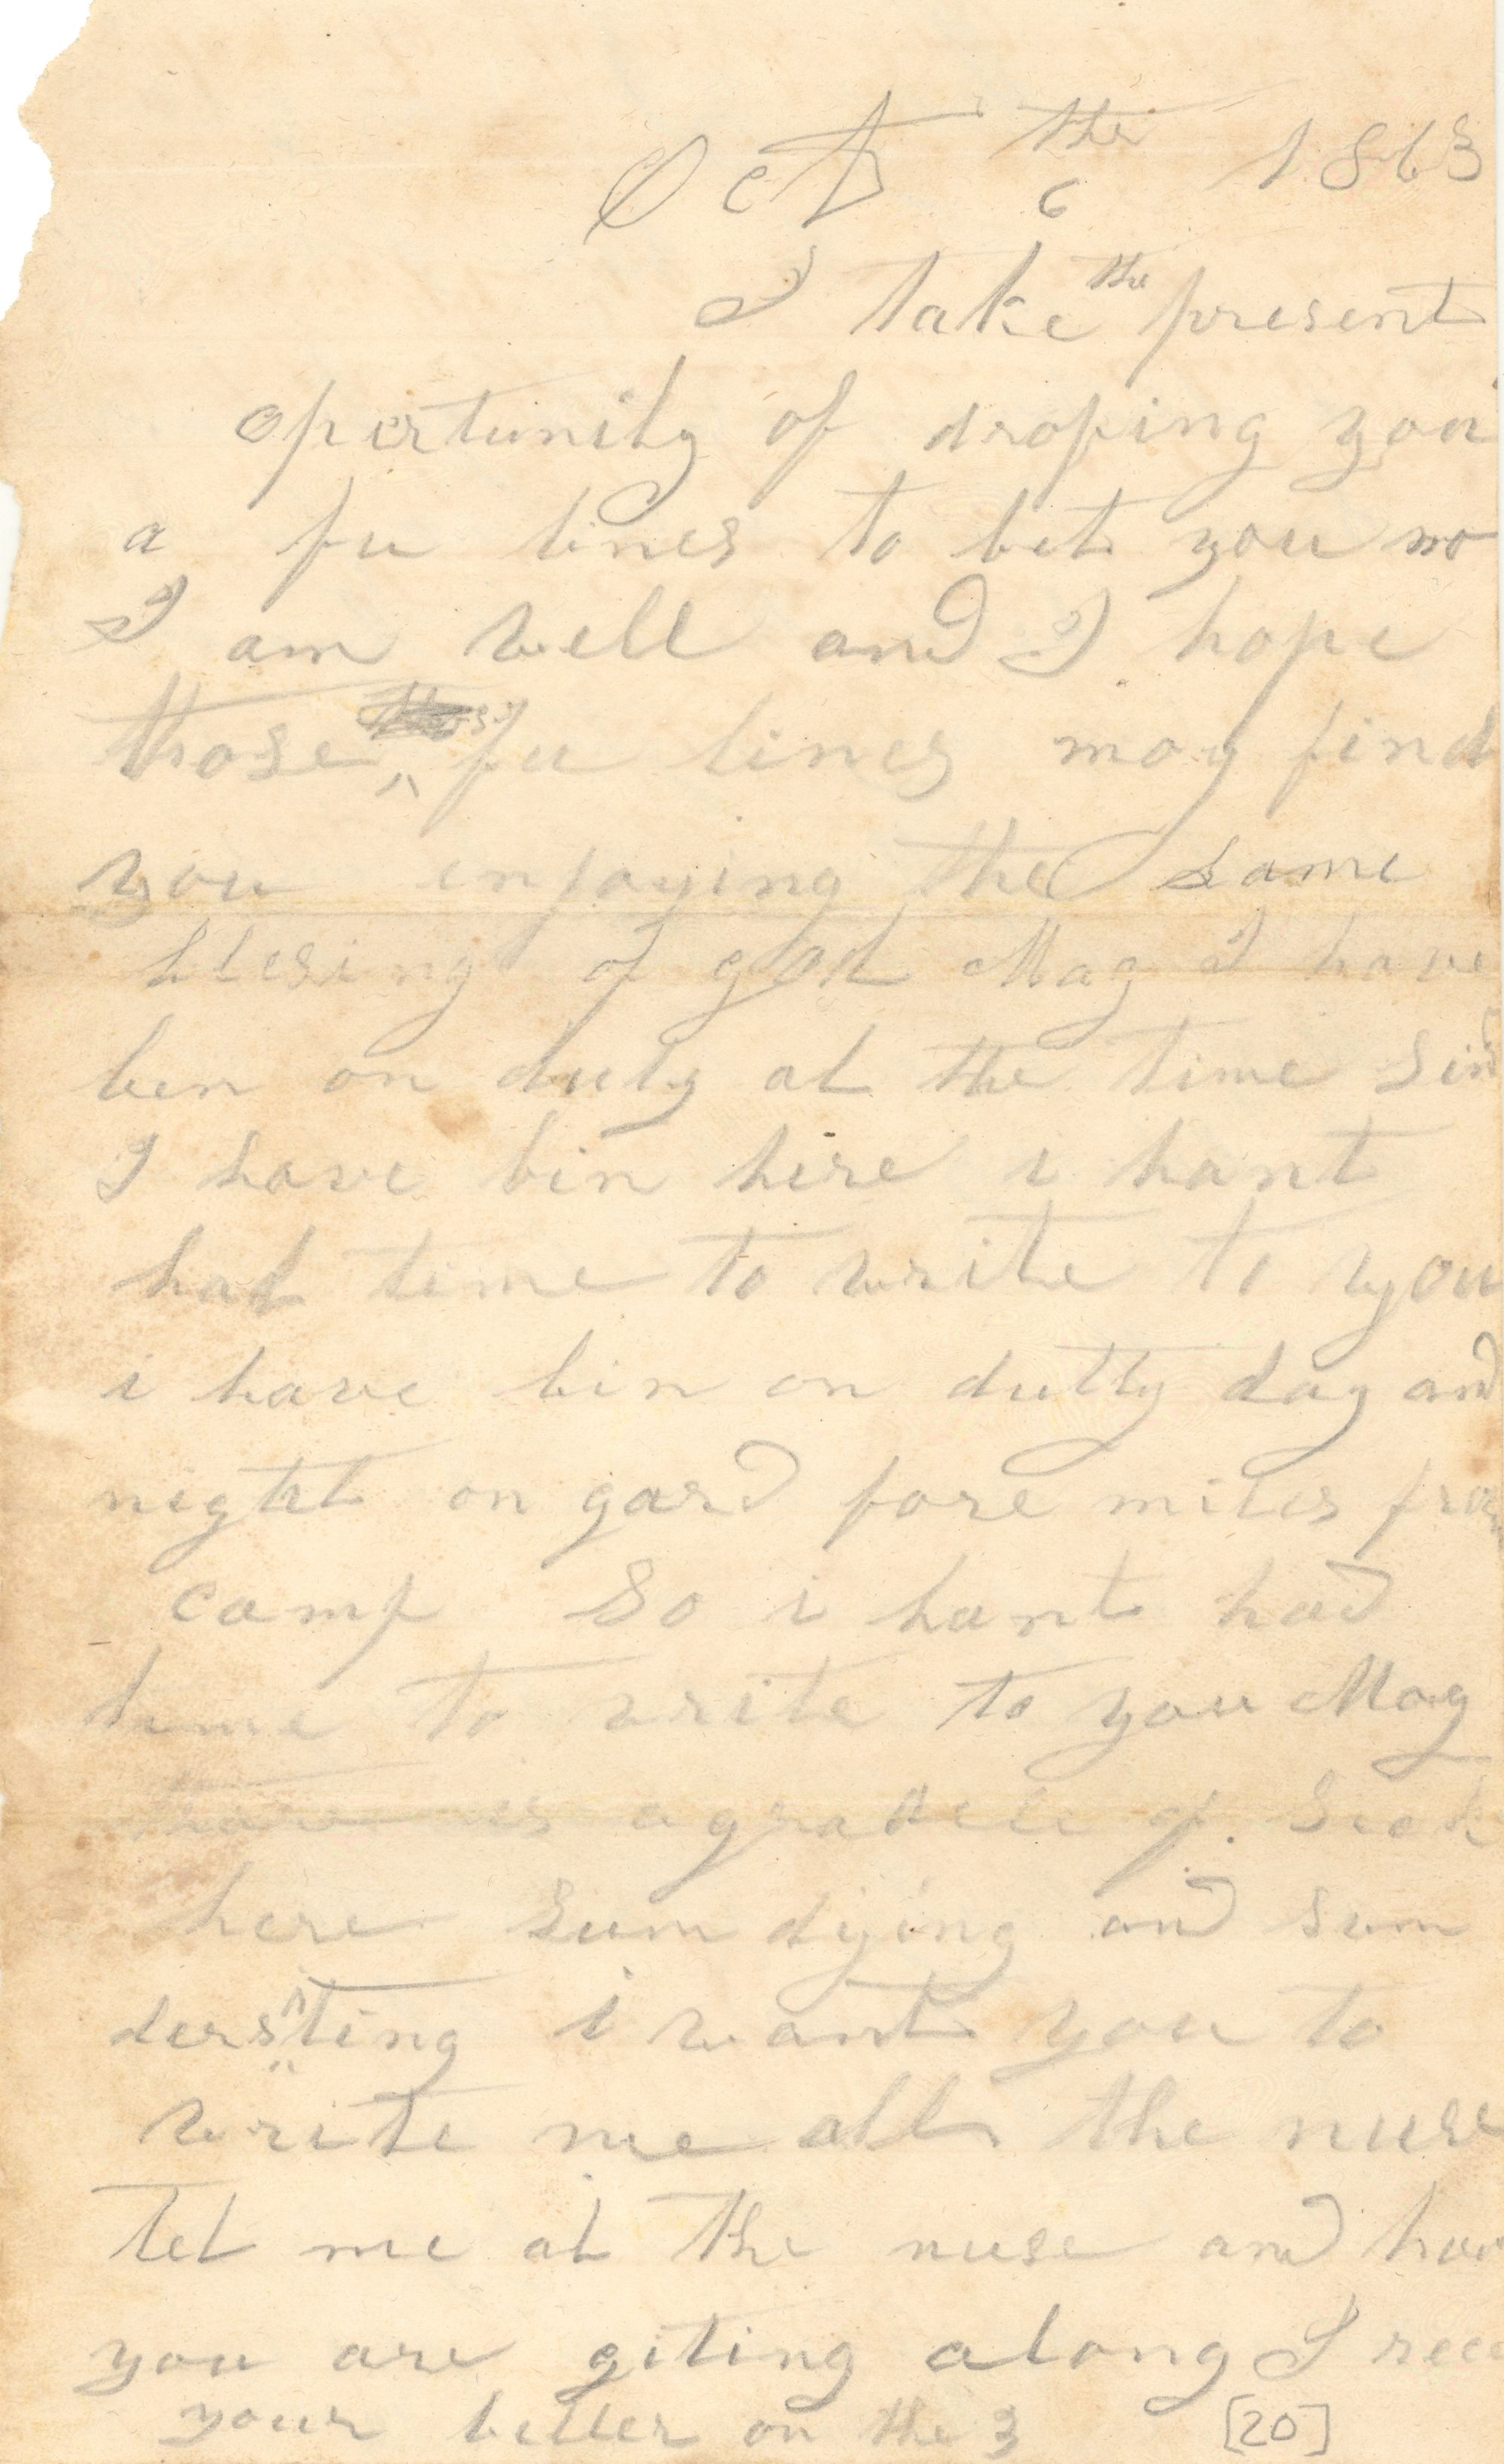 Oct the 6 1863
I take the present
opertunity of droping you
a fu lines to let you no
I am well and I hope
those fu lines may find
you enjoying the same
blesing of god Mag I have
ben on duty al the time sin
I have bin here i hant
had time to write to you
i have bin on dutty day and
night on gard fore miles from
camp So i hant had
time to write to you Mag
thare is a gradele of Sick
here Sum dying and sum
dersrting i want you to
write me all the nuse
tel me al the nuse and how
you are giting along I rece
your letter on the 3 [20]